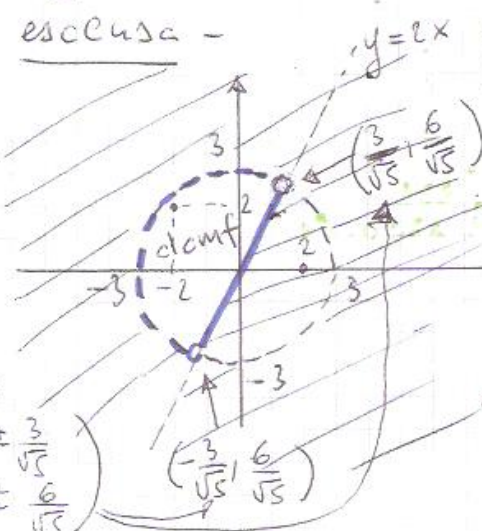 esclusa -
y = 2x
3
(3/√5, 6/√5)
2
domf
2
-3
-2
3
-3
± 3/√5
± 6/√5
(-3/√5, 6/√5)